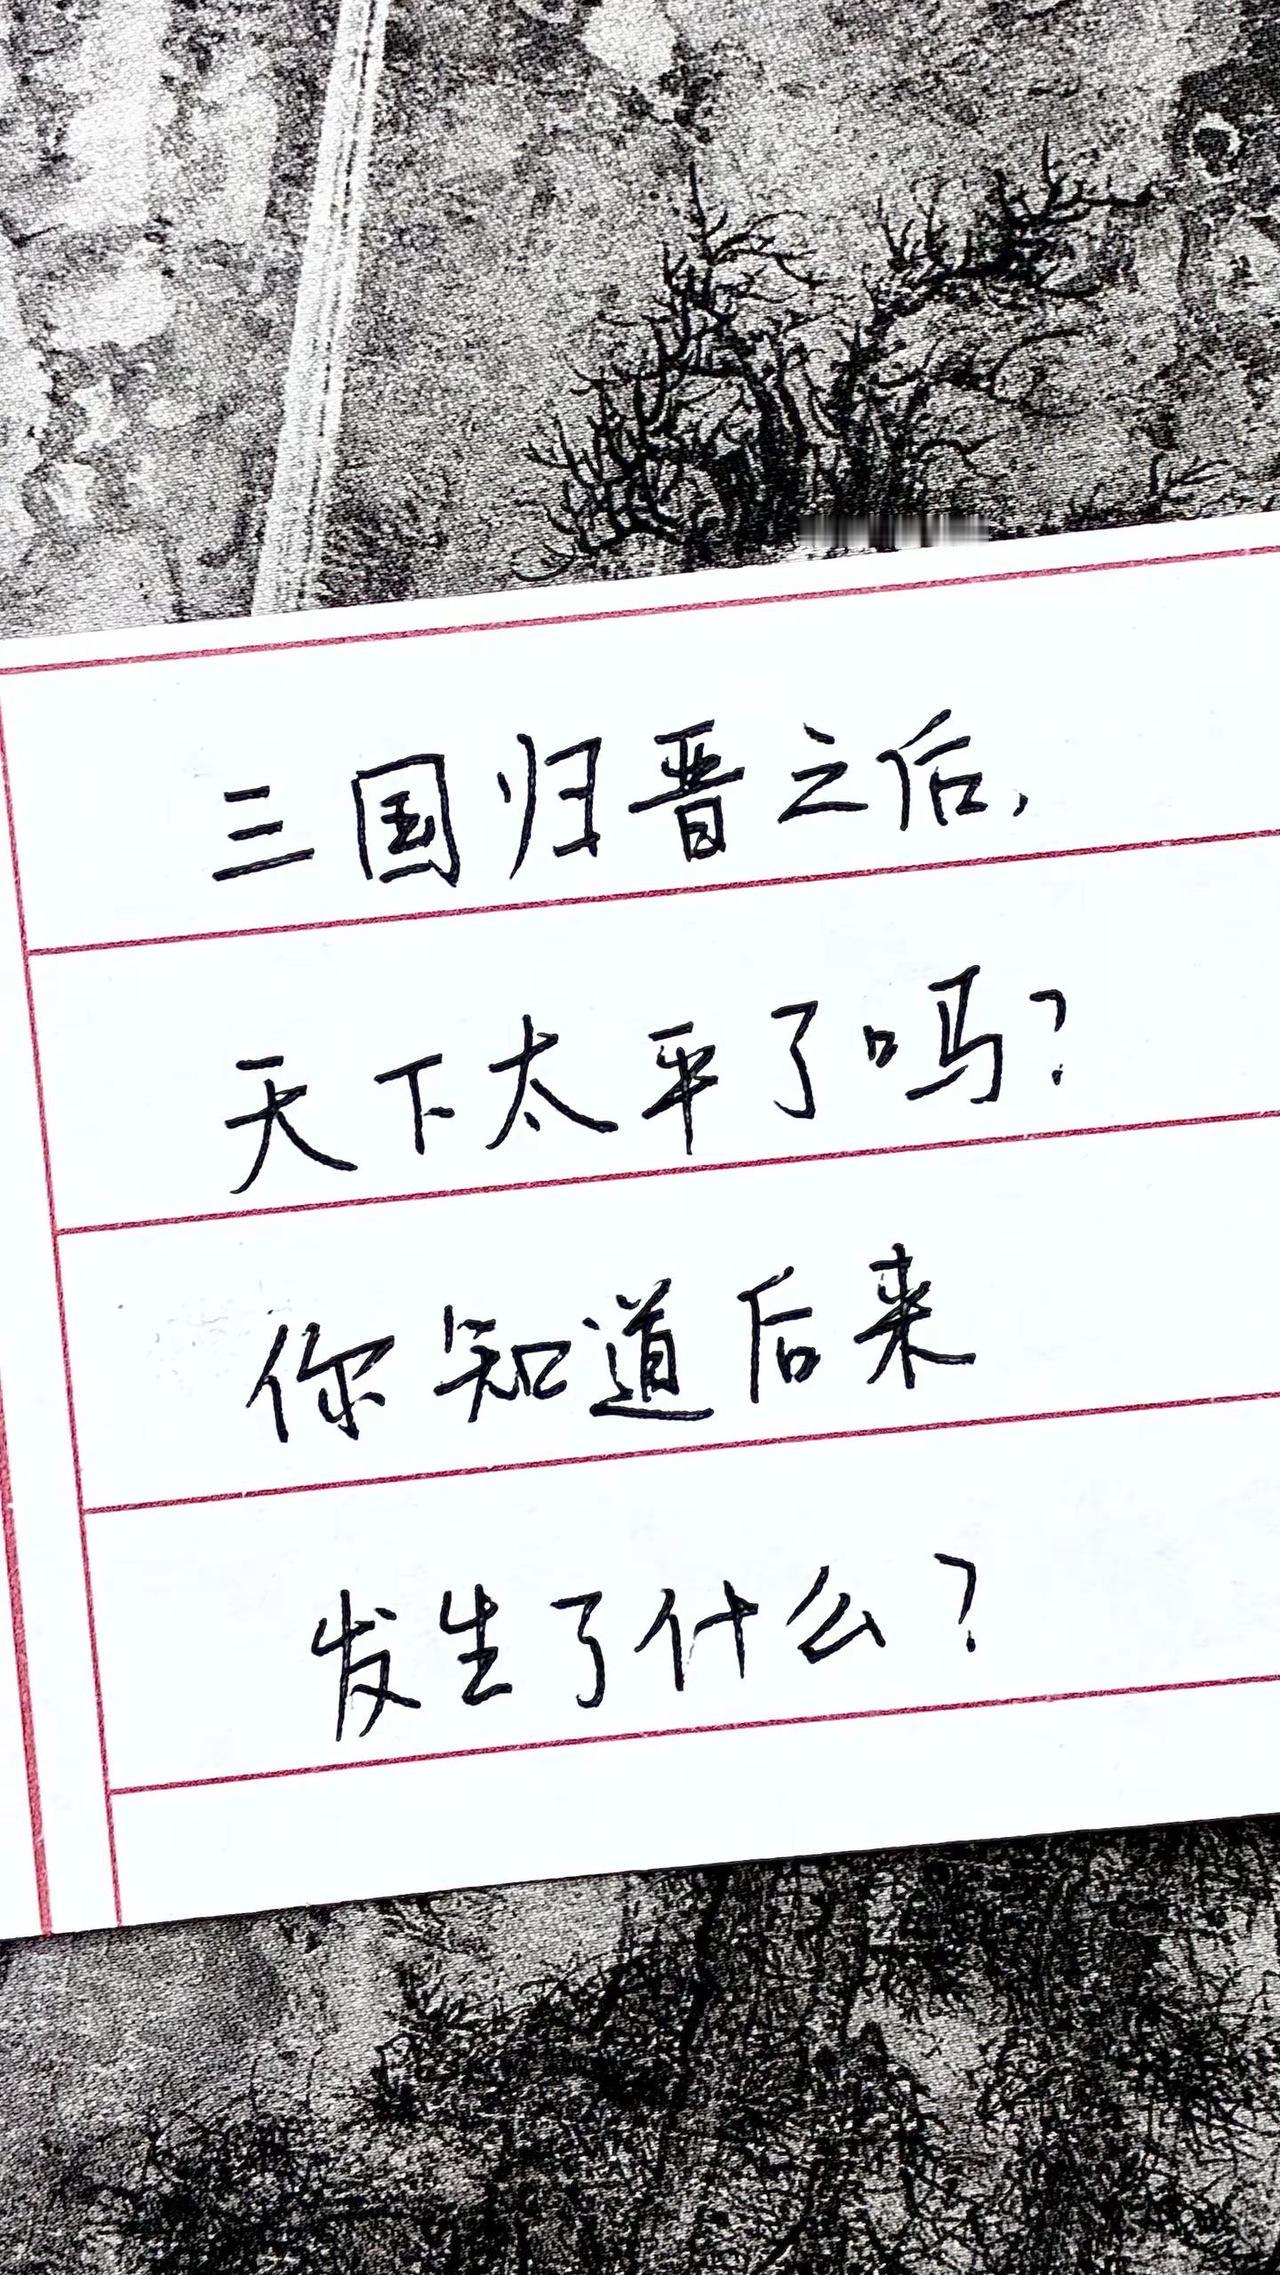 三国归晋之后，
天下太平了吗？
你知道后来
发生了什么？